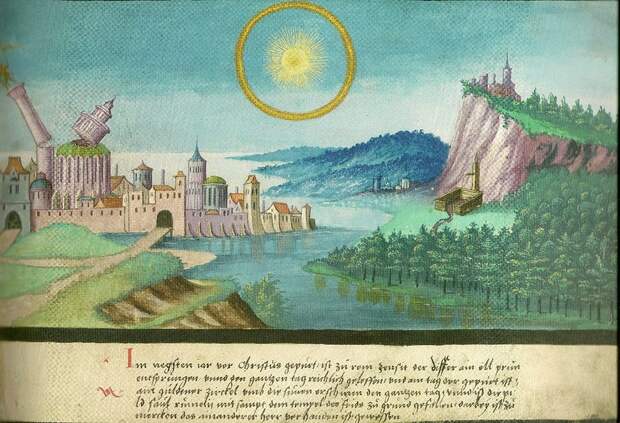 Im negsten iar vor Christus gepurt ist zu rom jensit der Tiffer ain oll prun
entsprungen vnnd den gantzen tag reichlich geloffen vnd am tag der gepurt ist
ain guldener zirckel vmb die sunen erschinen den gantzen tag vnnd ist die pi
ld saul rumeli mit sampt dem tempel des frids zu grund gefallen darbey ist zu
mercken das ain anderer herr vor handen ist gewessen